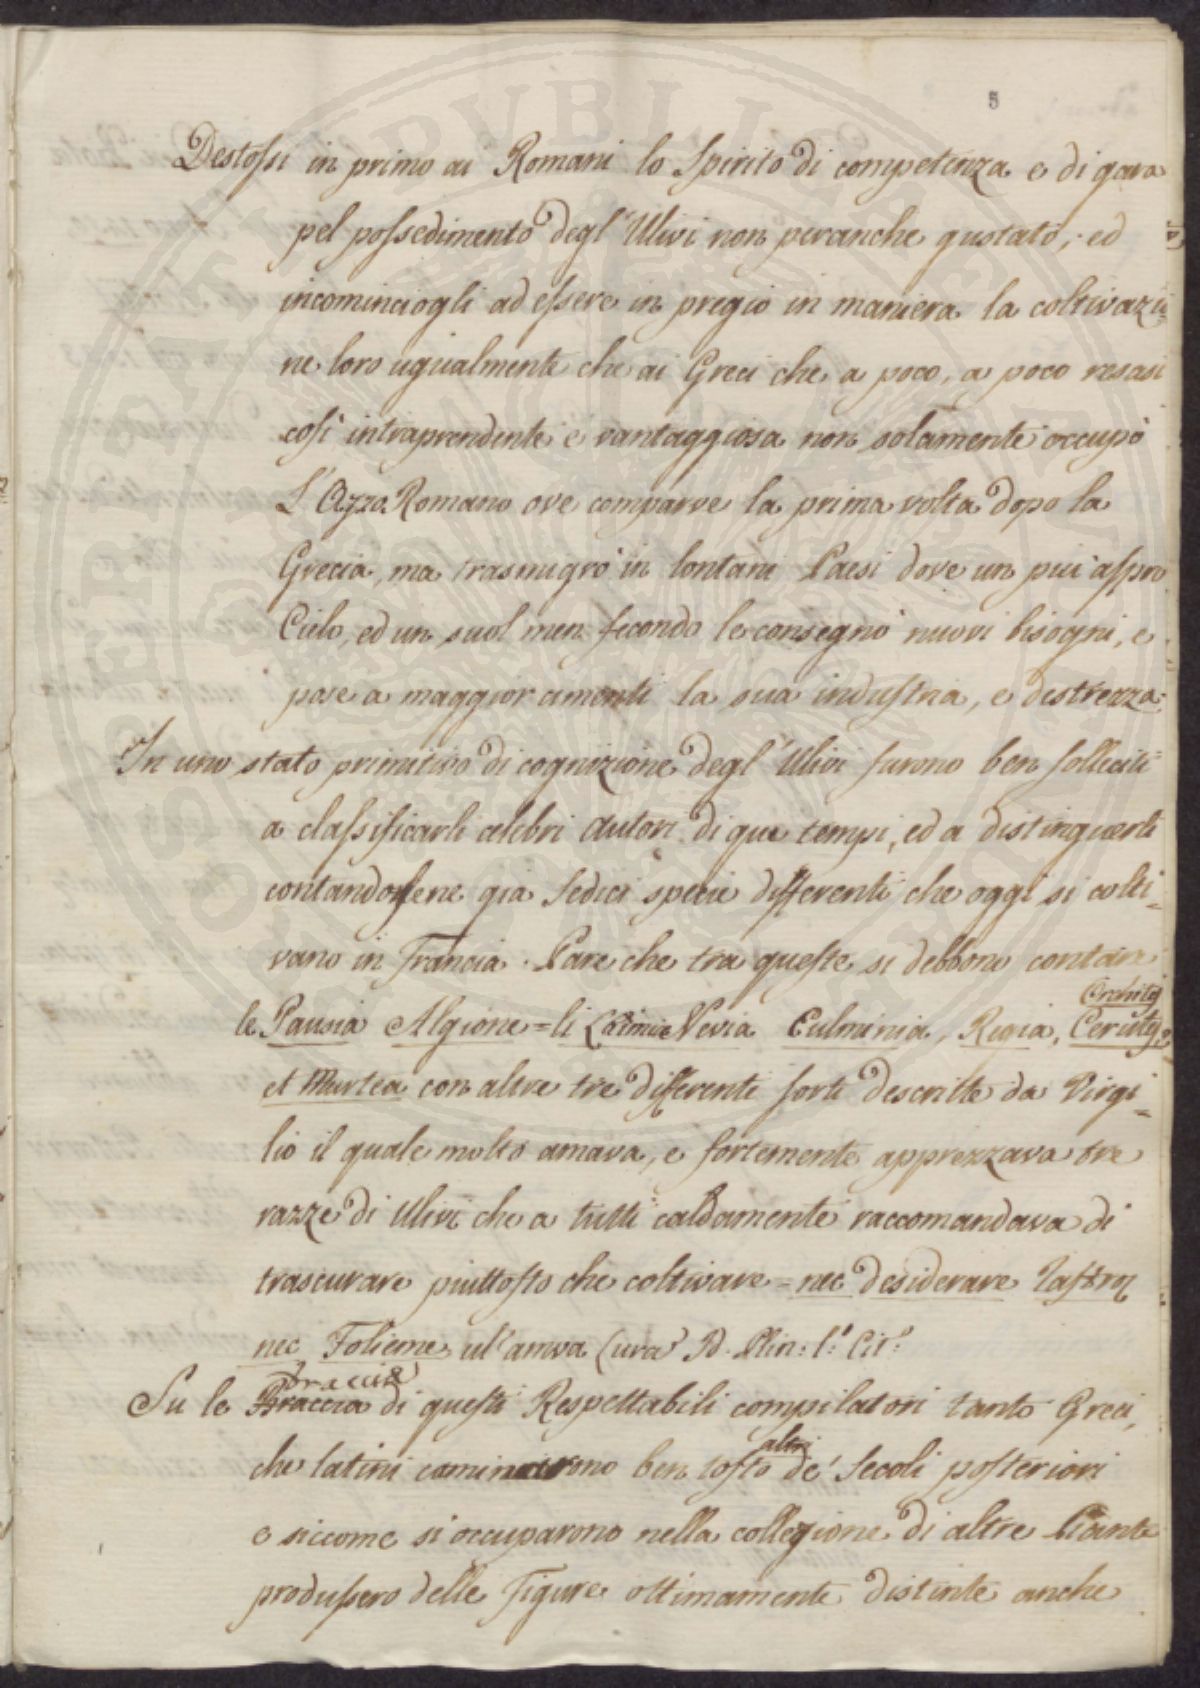 5
Destossi in primo ai Romani lo Spirito di competenza e di gara
pel possedimento degl' Ulivi non peranche gustato, ed
incominciogli ad essere in pregio in maniera la coltivazio=
ne loro ugualmente che ai Greci che a poco, a poco resasi
così intraprendente e vantaggiosa non solamente occupò
L'Agro Romano ove comparve la prima volta dopo la
Grecia, ma trasmigrò in lontani Paesi dove un più aspro
Cielo, ed un suol men fecondo le consegnò nuovi bisogni, e
pose a maggior cimenti la sua industria, e destrezza.
In uno stato primitivo di cognizione degl' Ulivi furono ben solleciti
a classificarli celebri Autori di que tempi, ed a distinguerli
contandosene già Sedici specie differenti che oggi si colti=
vano in Francia. Pare che tra queste si debbono contare
Orchitej
le Pausia Algione = li Nevia Culminia, Regia,
et Murtea con altre tre differenti sorti descritte da Virgi=
lio il quale molto amava, e fortemente apprezzava tre
razze di Ulivi che a tutti caldamente raccomandava di
trascurare piuttosto che coltivare = nec desiderare
nec Plin: l.° Cit.°
traccie
Su le di questi Respettabili compilatori tanto Greci,
altri
che latini caminarono ben tosto de' Secoli posteriori
e siccome si occuparono nella collezione di altre Piante
produssero delle Figure ottimamente distinte anche